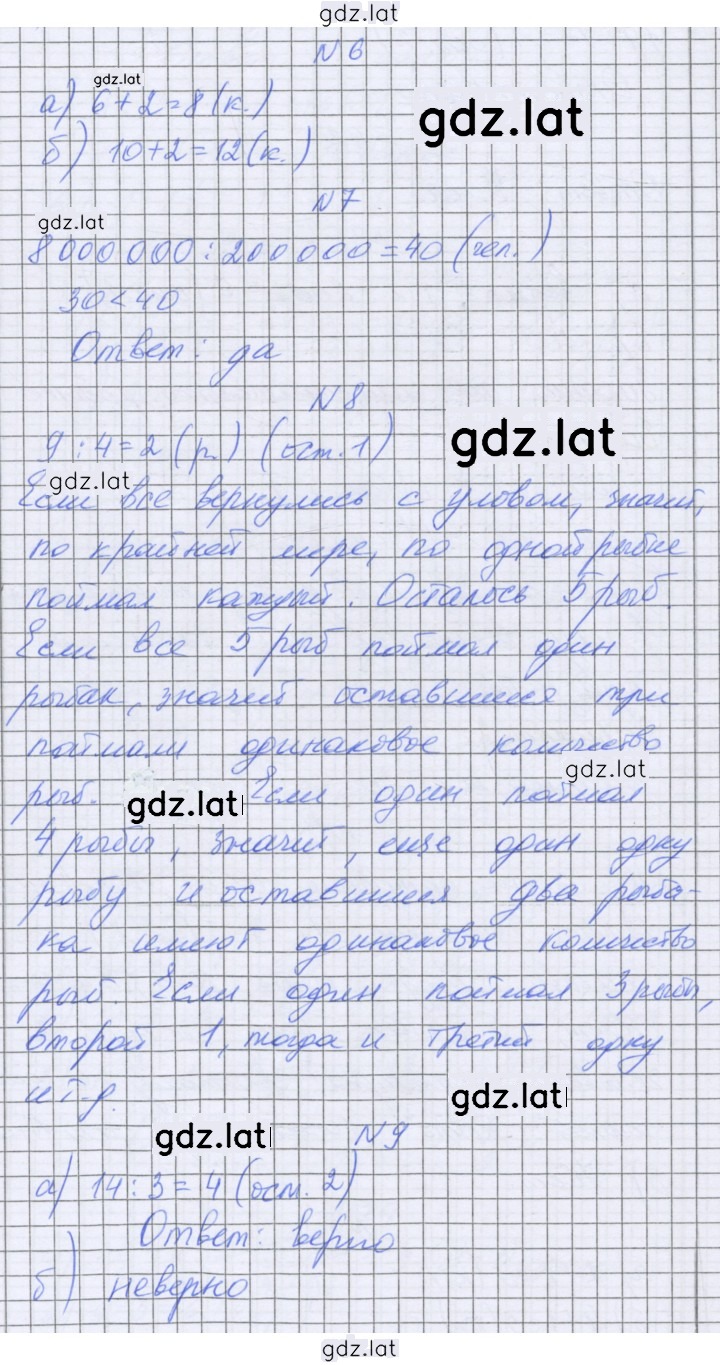 gdz.lat
N 6
gdz.lat
а) 6+2=8 (к.)
gdz.lat
б) 10+2=12 (к.)
N7
gdz.lat
8 000 000 : 200 000 = 40 (чел.)
30 < 40
Ответ: да
N 8
gdz.lat
9 : 4 = 2 (р.) (ост. 1)
gdz.lat
Если все вернулись с уловом, значит,
по крайней мере, по одной рыбке
поймал каждый. Осталось 5 рыб.
Если все 5 рыб поймал один
рыбак, значит оставшиеся три
поймали одинаковое количество
gdz.lat
рыб. Если один поймал
gdz.lat
4 рыбы, значит, еще один одну
рыбу и оставшиеся два рыба-
ка имеют одинаковое количество
рыб. Если один поймал 3 рыбы,
второй 1, тогда и третий одну
и т-д.
gdz.lat
gdz.lat
N 9
а) 14 : 3 = 4 (ост. 2)
Ответ: верно
б) неверно
gdz.lat